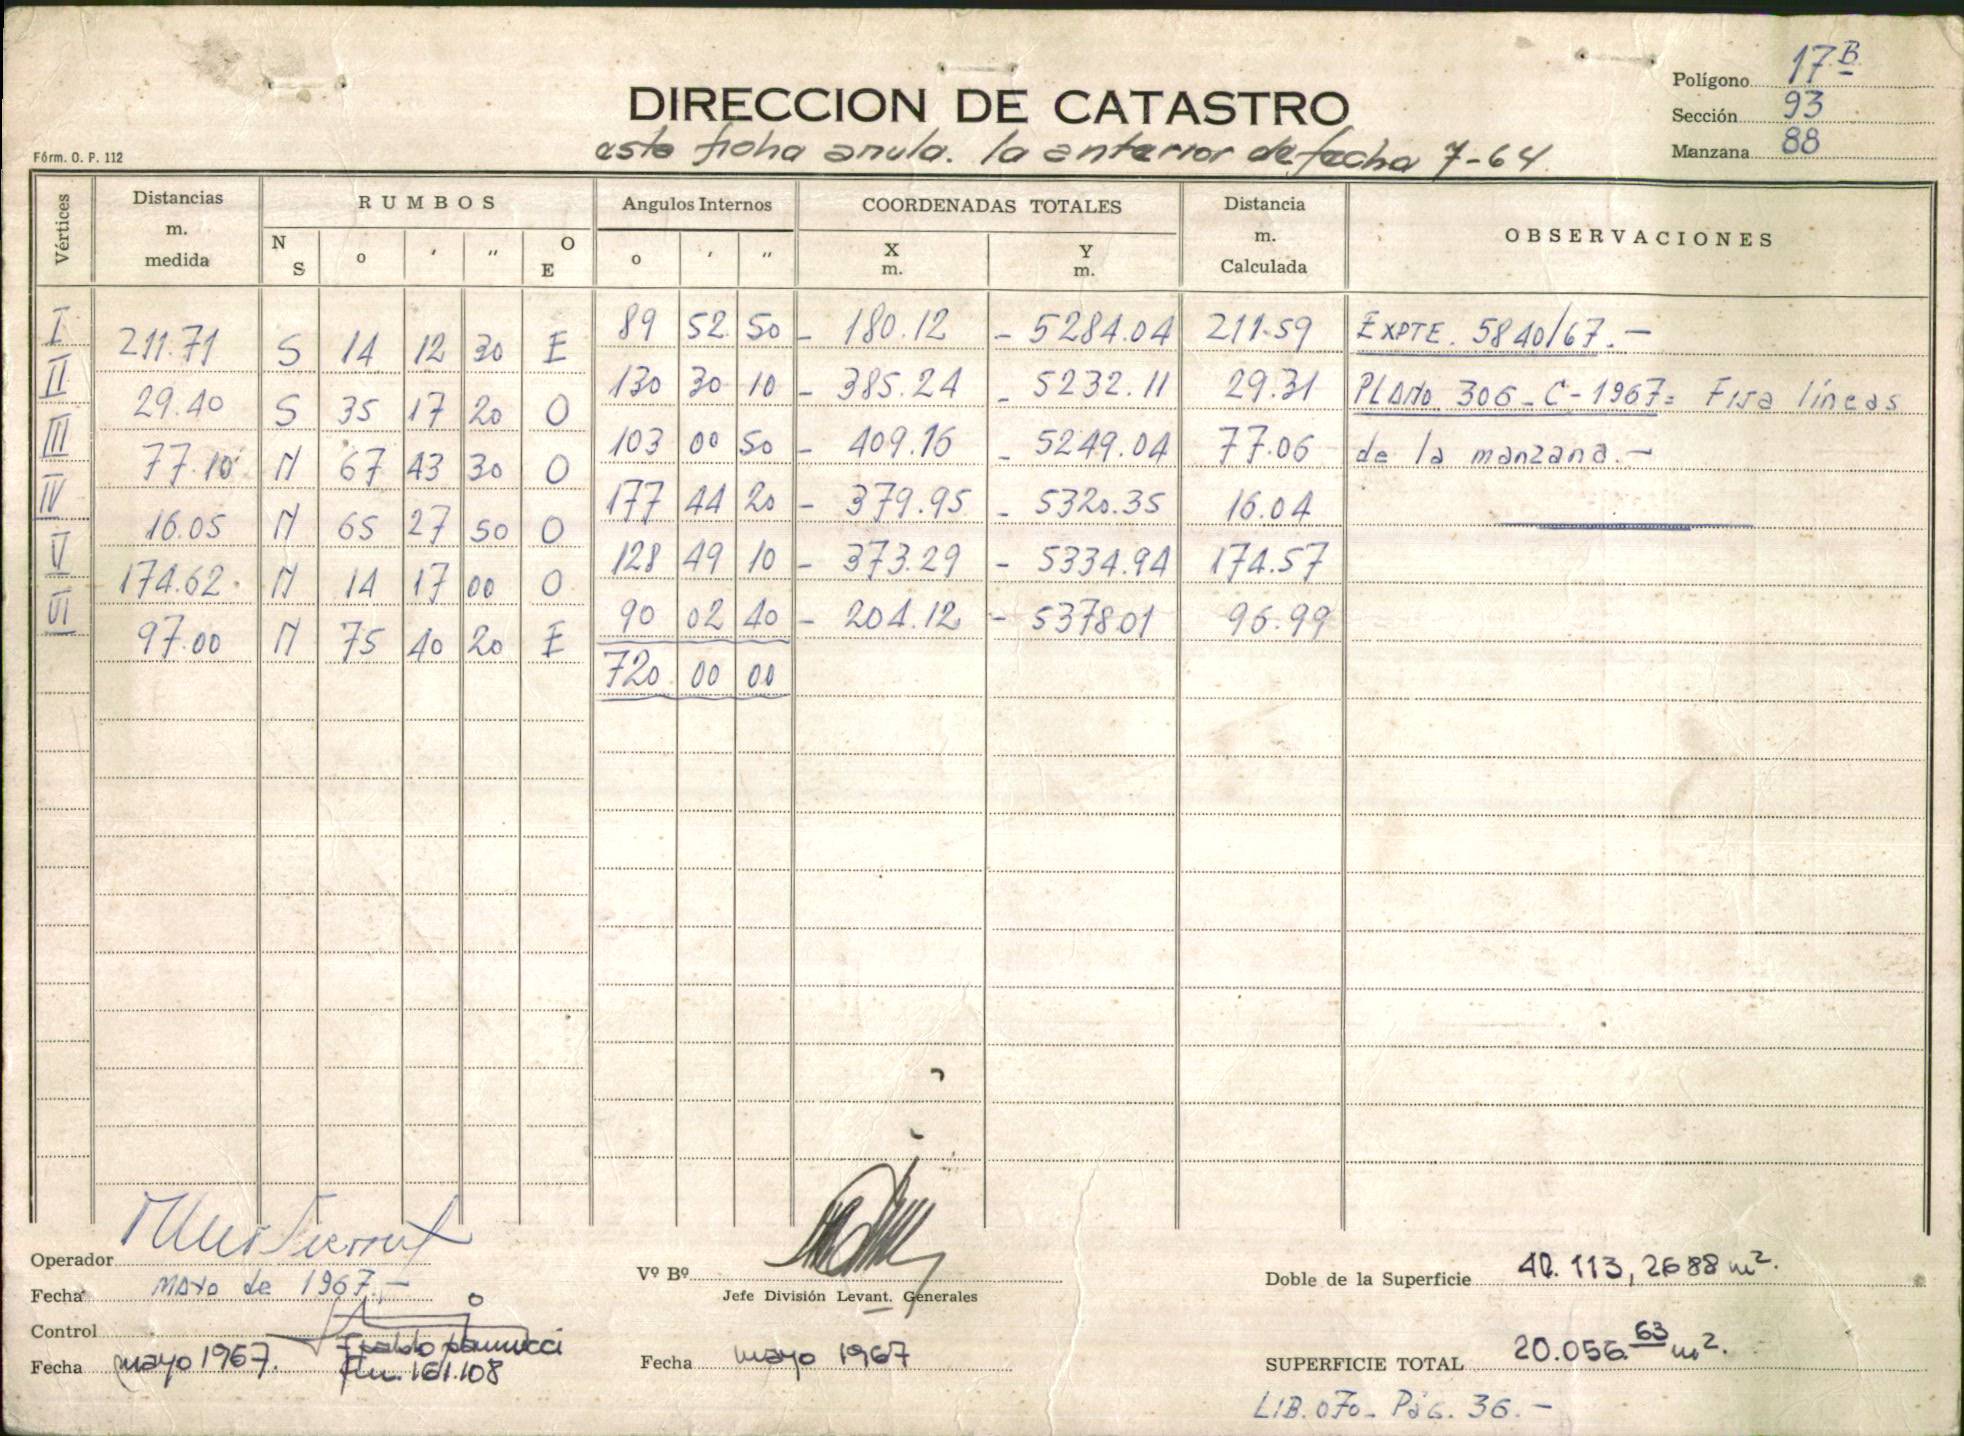 Polígono 17 B
DIRECCION DE CATASTRO
Sección 93
esta ficha anula. la anterior de fecha 7-64.
Manzana 88
Fórm. O. P. 112
Vértices Distancias m. medida RUMBOS Angulos Internos COORDENADAS TOTALES Distancia m. Calculada OBSERVACIONES
N S o ' " O E o ' " X m. Y m.
I 89 52 50 - 180.12 - 5284.04 211.59 EXPTE. 5840/67.-
211.71 S 14 12 30 E
II 130 30 10 - 385.24 - 5232.11 29.31 PLANO 306-C-1967= Fija líneas
29.40 S 35 17 20 O
III 103 00 50 - 409.16 - 5249.04 77.06 de la manzana.-
77.10 N 67 43 30 O
IV 177 44 20 - 379.95 - 5320.35 16.04
16.05 N 65 27 50 O
V 128 49 10 - 373.29 - 5334.94 174.57
174.62 N 14 17 00 O
VI 90 02 40 - 204.12 - 537801 96.99
97.00 N 75 40 20 E
720 00 00
Operador
Fecha mayo de 1967.-
Vº Bº
Jefe División Levant. Generales
Doble de la Superficie 40.113,2688 m².
Control
Fecha mayo 1967. 161.108
Fecha mayo 1967
SUPERFICIE TOTAL 20.056.63 m².
LIB. 070- Pág. 36.-